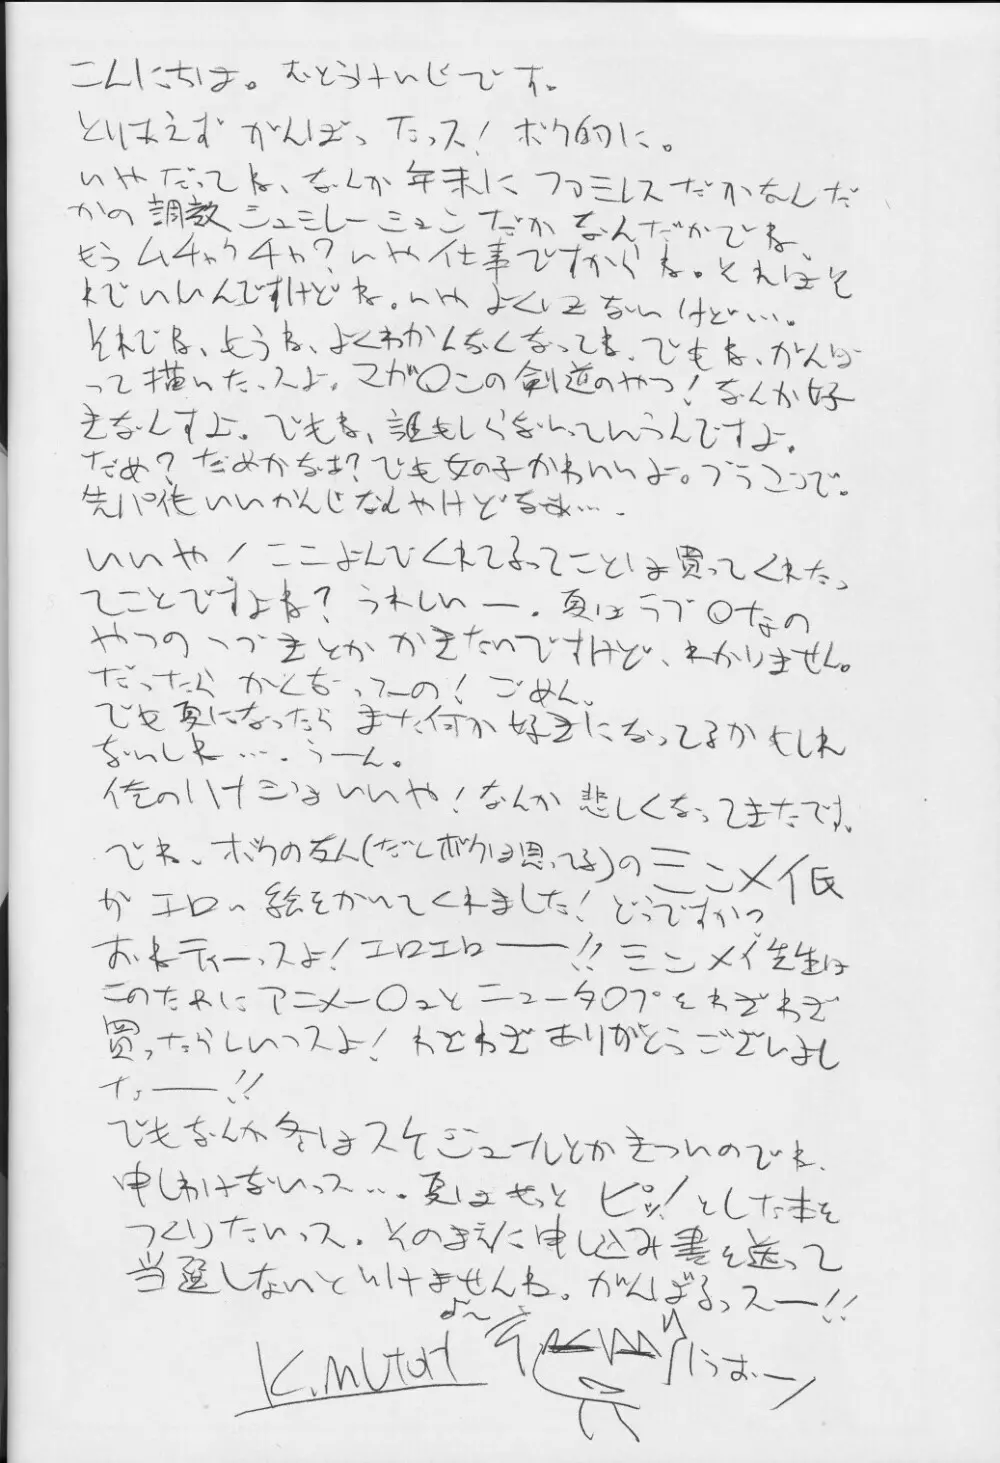 こんにちは。むとうけいじです。
とりはえずがんばったっス！ボク的に。
いやだってね、なんか年末にファミレスだかなんだ
かの調教シュミレーションだかなんだかでね、
もうムチャクチャ？いや仕事ですからね。それはそ
れでいいんですけどね。いやよくはないけど…。
それでね、もうね、よくわかんなくなってね、でもね、がんば
って描いたっスよ。マガ〇ンの剣道のやつ！なんか好
きなんすよ。でもね、誰もしらないっていうんですよ。
だめ？だめかなは？でも女の子かわいいよ。ブラコンで。
先パイもいいかんじなんやけどなぁ…．
いいや！ここよんでくれてるってことは買ってくれたっ
てことですよね？うれしいー．夏はラブ〇なの
やつのつづきとかかきたいですけど、わかりません。
だったらかくなってーの！ごめん。
でも夏になったらまた何か好きになってるかもしれ
ないしね…．うーん。
俺のハナシはいいや！なんか悲しくなってきたです。
でね、ボクの友人(だとボクは思ってる)のミンメイ氏
がエロい絵をかいてくれました！どうですかっ
おねティーっスよ！エロエロー！！ミンメイ先生は
このためにアニメー〇ュとニュータ〇プをわざわざ
買ったらしいっスよ！わざわざありがとうございまし
たー！！
でもなんか冬はスケジュールとかきついのでね、
申しわけないっス…．夏はもっとピッ！とした本を
つくりたいっス．そのまえに申し込み書を送って
当選しないといけませんね。がんばるっスー！！
K.MUTOH